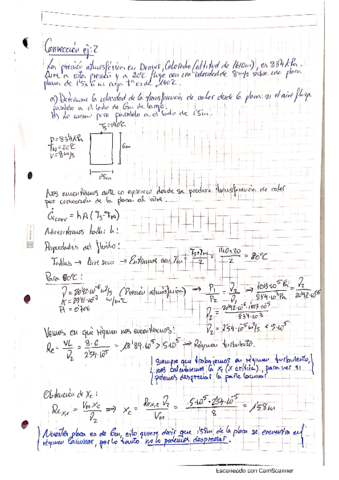 Convección ej: 2
La presión atmosférica en Denver, Colorado (altitud de 1610m), es 83'4 kPa.
Aire a esta presión y a 20ºC fluye con una velocidad de 8 m/s sobre una placa
plana de 1'5 x 6 m cuya Tª es de 140ºC.
a) Determine la velocidad de la transferencia de calor desde la placa si el aire fluye
paralelo al lado de 6m de largo.
b) Lo mismo pero paralelo al lado de 1'5m.
Ts=140ºC
P=83'4 kPa
T∞=20ºC
V=8 m/s
6m
1'5m
Nos encontramos ante un ejercicio donde se produce transferencia de calor
por convección de la placa al aire.
Q̇conv = hA(Ts-T∞)
Necesitamos hallar h:
Propiedades del fluido:
Tablas → Aire seco → Entramos con Tm = (Ts+T∞)/2 = (140+20)/2 = 80ºC
Para 80ºC:
(Presión atmosférica) → P1/P2 = ν2/ν1
Vemos en qué régimen nos encontramos:
Re = VL/ν2 = 8·6/2'54·10⁻⁵ = 18'89·10⁵ > 5·10⁵ → Régimen turbulento.
Aunque trabajemos en régimen turbulento,
nos calculamos la xc (x crítica), para ver si
podemos despreciar la parte laminar.
Obtención de xc:
Re,xc = V∞ xc/ν2 ⇒ xc = Re,xc ν2/V∞ = 5·10⁵·2'54·10⁻⁵/8 = 1'58m
Nuestra placa es de 6m, esto quiere decir que 1'58m de la placa se encuentra en
régimen laminar, por lo tanto no lo podemos despreciar.
Escaneado con CamScanner